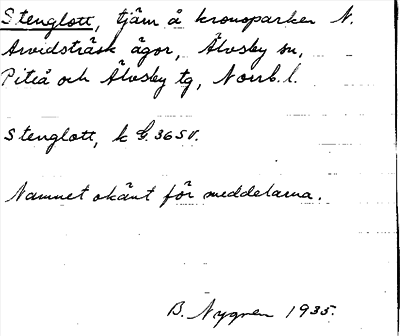 Stenglott, tjärn å kronoparken N.
Arvidsträsk ägor, Älvsby sn,
Piteå och Älvsby tg, Norrb. l.
Stenglott, k G. 365V.
Namnet okänt för meddelarna.
B. Nygren 1935.